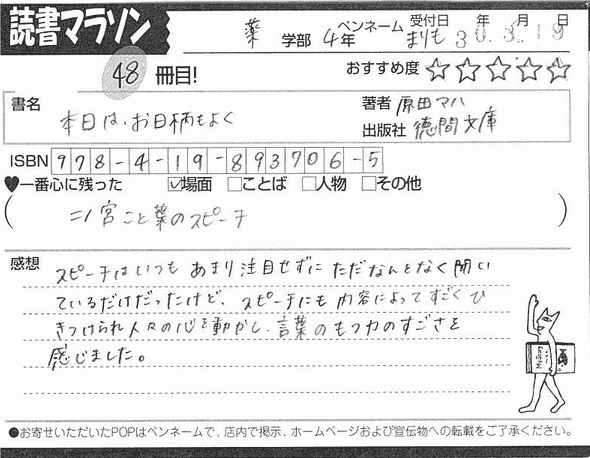 読書マラソン
薬 学部 4年 ペンネーム まりも 受付日 30年 3月 19日
48 冊目!
おすすめ度 ☆☆☆☆☆
書名 本日は、お日柄もよく
著者 原田マハ
出版社 徳間文庫
ISBN 978-4-19-893706-5
♥一番心に残った ☑場面 □ことば □人物 □その他
(ニノ宮こと葉のスピーチ)
感想 スピーチはいつもあまり注目せずにただなんとなく聞い
ているだけだったけど、スピーチにも内容によってすごくひ
きつけられ人々の心を動かし、言葉のもつ力のすごさを
感じました。
●お寄せいただいたPOPはペンネームで、店内で掲示、ホームページおよび宣伝物への転載をご了承ください。